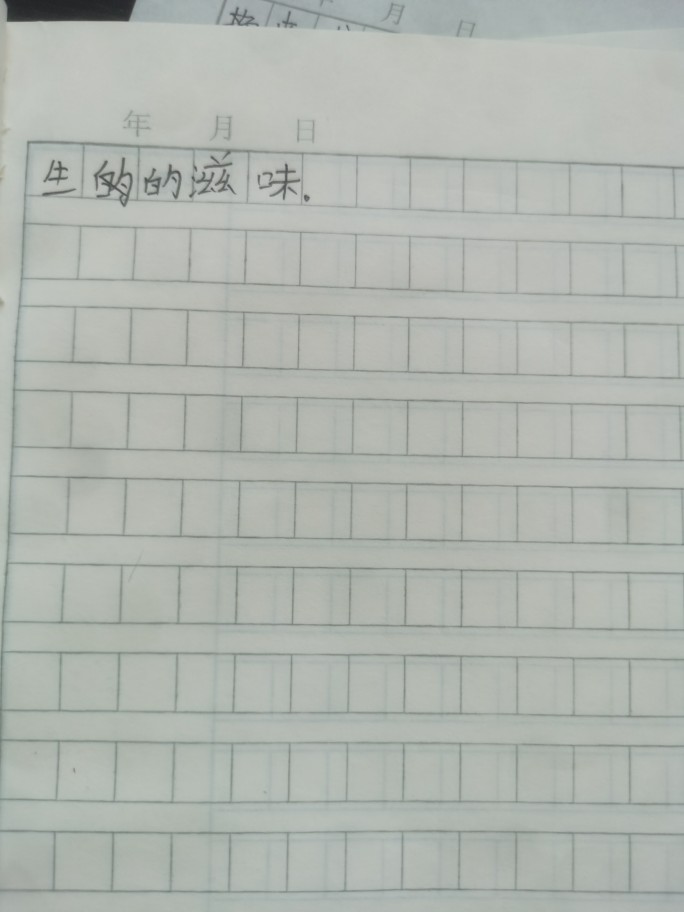 月 日
年 月 日
生的的滋味.